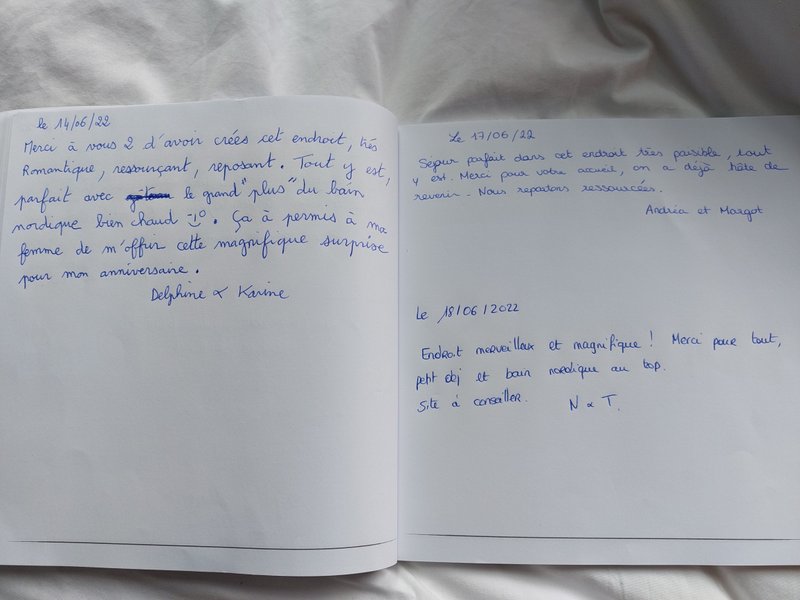 le 14/06/22
Merci à vous 2 d'avoir crées cet endroit, très
Romantique, ressourçant, reposant. Tout y est,
parfait avec le grand "plus" du bain
nordique bien chaud. Ça à permis à ma
femme de m'offrir cette magnifique surprise
pour mon anniversaire.
Delphine & Karine
Le 17/06/22
Séjour parfait dans cet endroit très paisible, tout
y est. Merci pour votre accueil, on a déjà hâte de
revenir. Nous repartons ressourcées.
Andréa et Margot
Le 18/06/2022
Endroit merveilleux et magnifique ! Merci pour tout,
petit dej et bain nordique au top.
Site à conseiller. N & T.